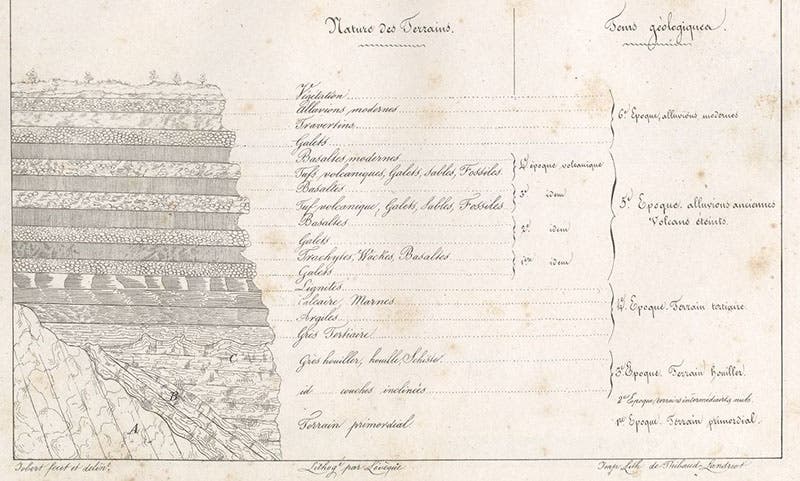 Nature des Terrains.
Tems géologiques.
Végétation
Alluvions modernes
Travertins
Galets
6e Epoque, alluvions modernes
Basaltes modernes
Tufs volcaniques, Galets, Sables, Fossiles.
4e époque volcanique
Basaltes
3e idem
Tuf volcanique, Galets, Sables, Fossiles
Basaltes
2e idem
Galets
Trachytes, Wackes, Basaltes
1ere idem
Galets
5e Epoque. alluvions anciennes
Volcans éteints.
Lignites
Calcaire, Marnes
Argiles
Grès Tertiaire
4e Epoque. Terrain tertiaire.
Grès houiller, houille, Schistes
id couches inclinées
3e Epoque. Terrain houiller.
2me Epoque, terrains intermédiaires
Terrain primordial
1ere Epoque. Terrain primordial.
C
B
A
Jobert fecit et delint.
Lithogé par Lévêque
Imp. Lith. de Thibaud-Landriot